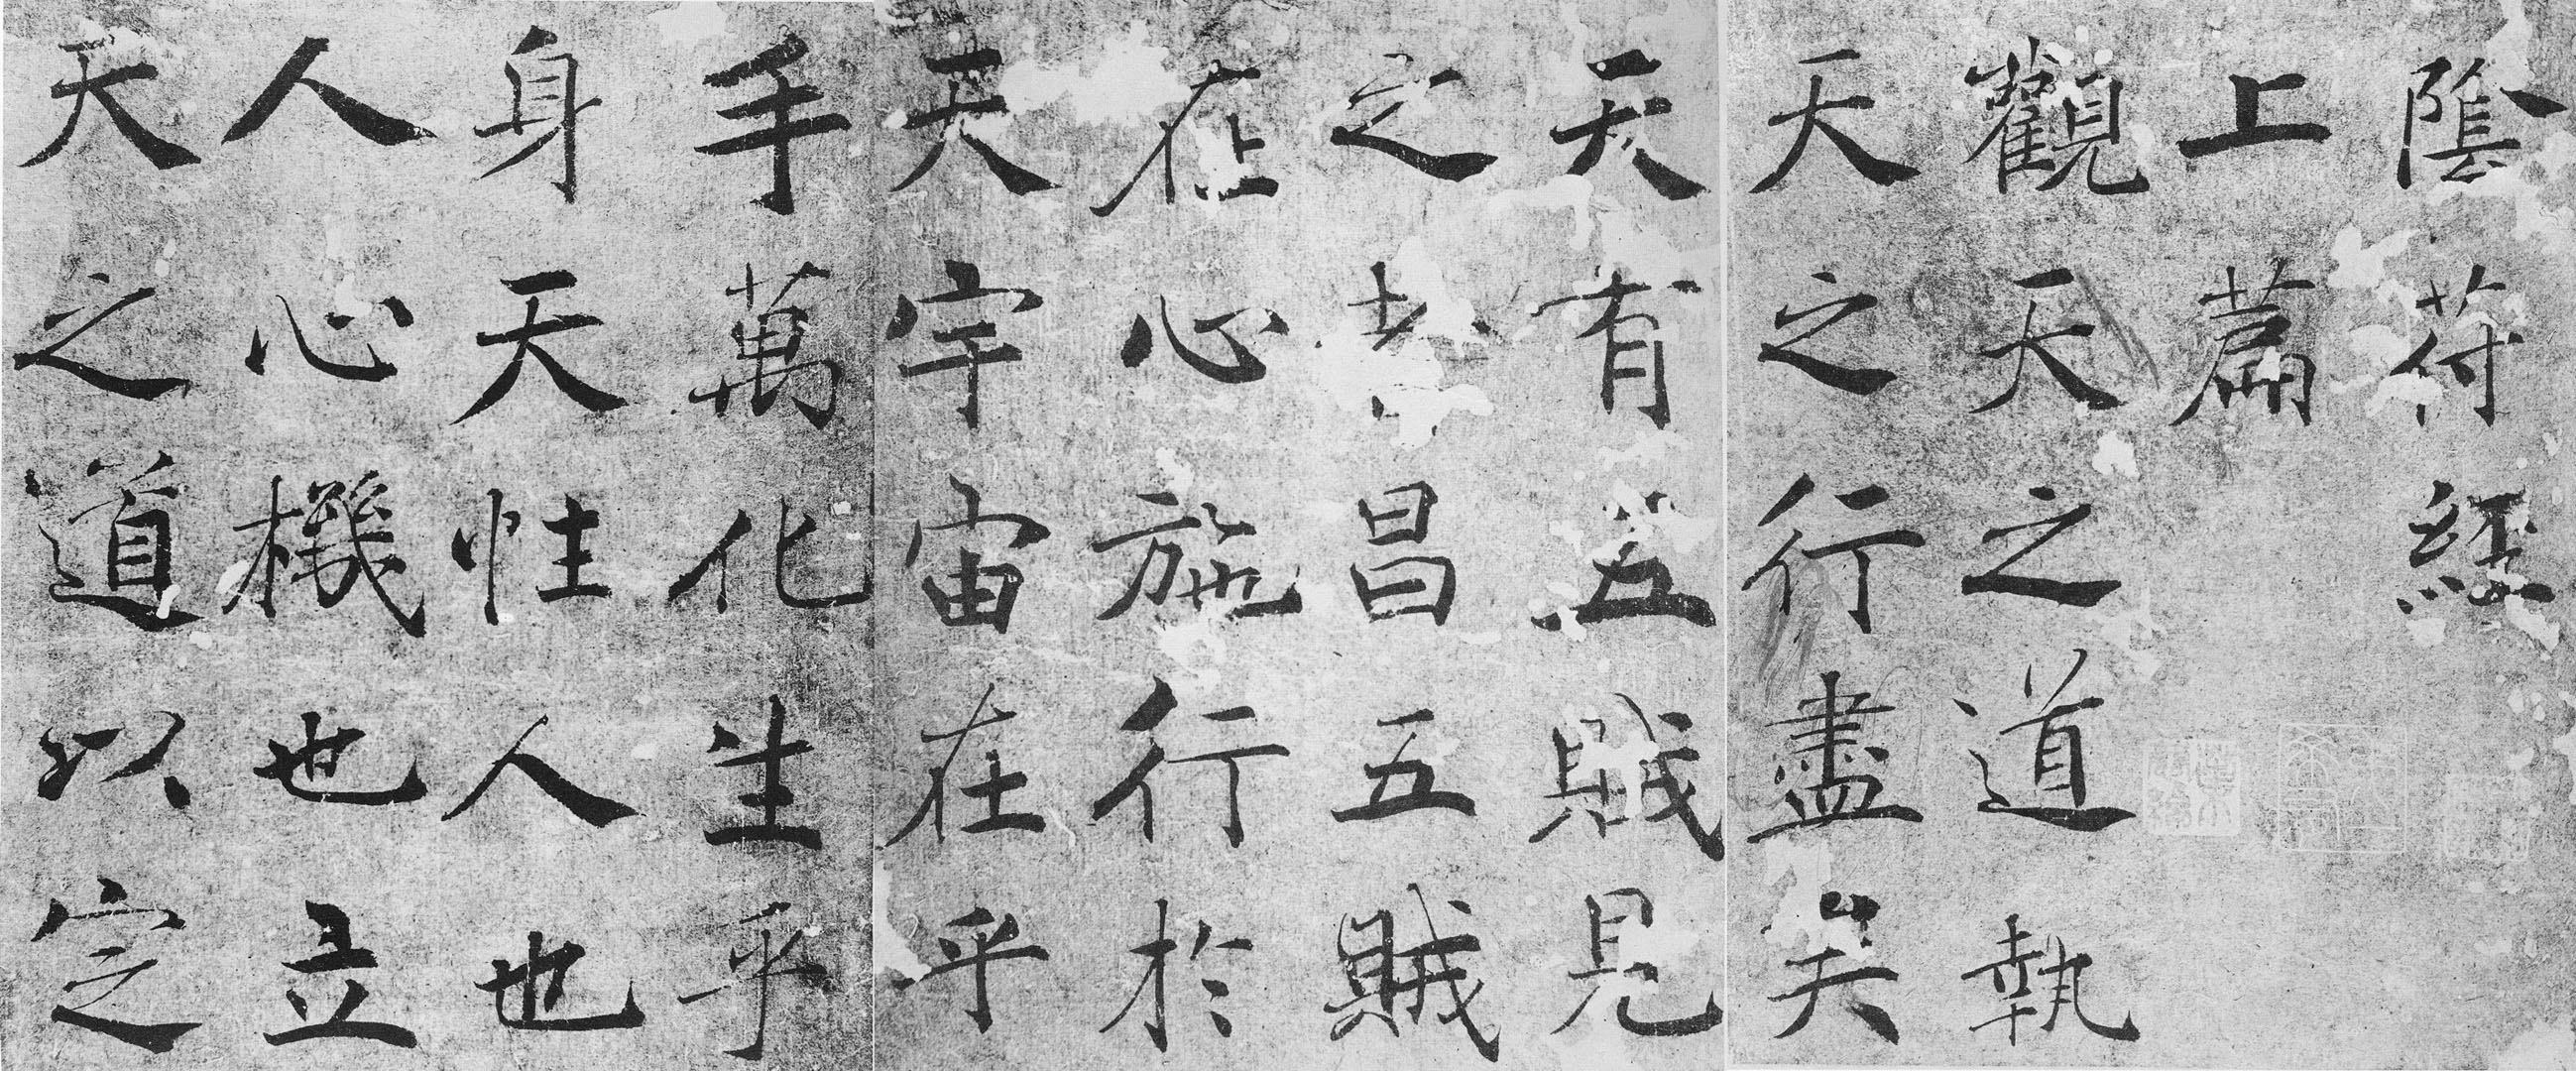 陰苻經
上萹
觀天之道執
天之行盡矣
天有五賊見
之者昌五賊
在心施行於
天宇宙在乎
手萬化生乎
身天性人也
人心機也立
天之道以定